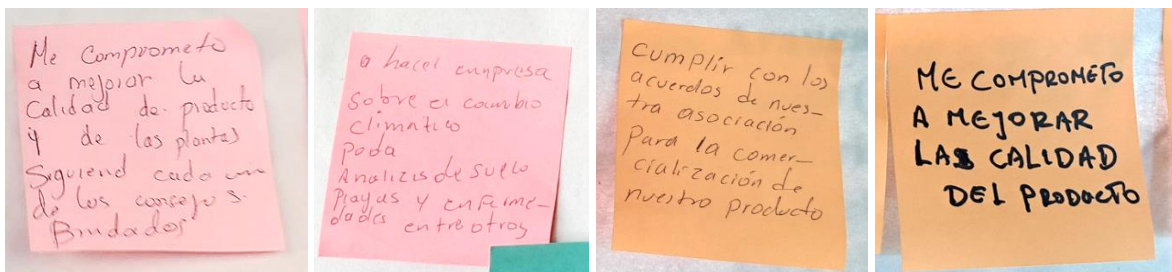 Me Comprometo
a mejorar la
Calidad de producto
y de las plantas
Siguiend cada un
de los consejos.
Brindados
a hacer empresa
Sobre el cambio
climatico
Poda
Analizis de suelo
Plagas y enferme-
dades entre otros
Cumplir con los
acuerdos de nues-
tra asociación
Para la comer-
cialización de
nuestro producto
ME COMPROMETO
A MEJORAR
LA CALIDAD
DEL PRODUCTO